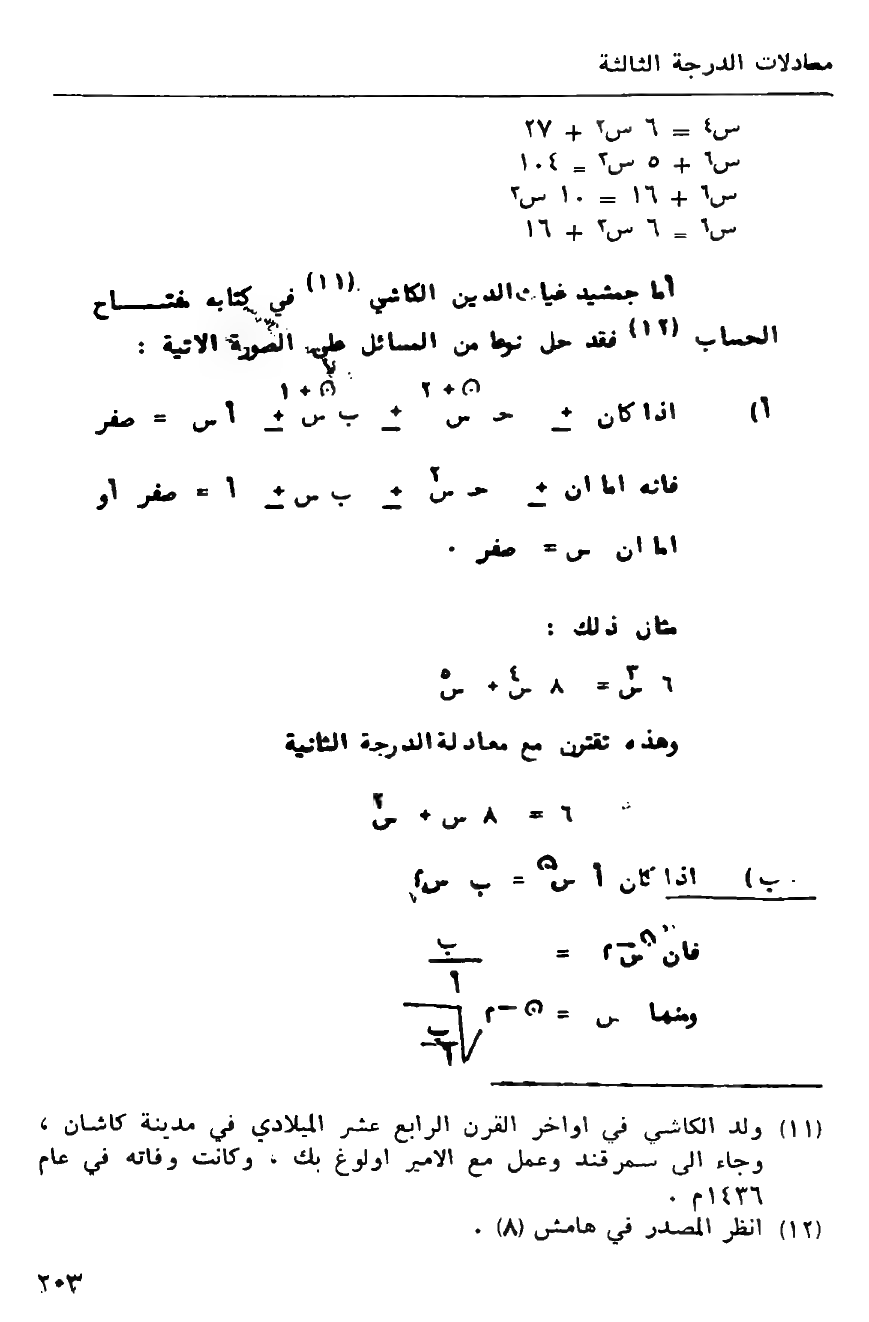 معادلات الدرجة الثالثة
س٤ = ٦ س٢ + ٢٧
س٦ + ٥ س٣ = ١٠٤
س٦ + ١٦ = ١٠ س٣
س٦ = ٦ س٣ + ١٦
أما جمشيد غياث الدين الكاشي (١١) في كتابه مفتـــاح
الحساب (١٢) فقد حل نوعا من المسائل على الصورة الاتية :
أ) اذا كان ± حـ س ن+٢ ± ب س ن+١ ± أ س = صفر
فانه اما ان ± حـ س٢ ± ب س ± أ = صفر أو
اما ان س = صفر ٠
مثال ذلك :
٦ س٣ = ٨ س٤ + س٥
وهذه تقترن مع معادلة الدرجة الثانية
٦ = ٨ س + س٢
ب) اذا كان أ س ن = ب س م
فان س ن−م = ب/أ
ومنها س = ن−م√ب/أ
(١١) ولد الكاشي في اواخر القرن الرابع عشر الميلادي في مدينة كاشان ،
وجاء الى سمرقند وعمل مع الامير اولوغ بك ، وكانت وفاته في عام
١٤٣٦م ٠
(١٢) انظر المصدر في هامش (٨) ٠
٢٠٣